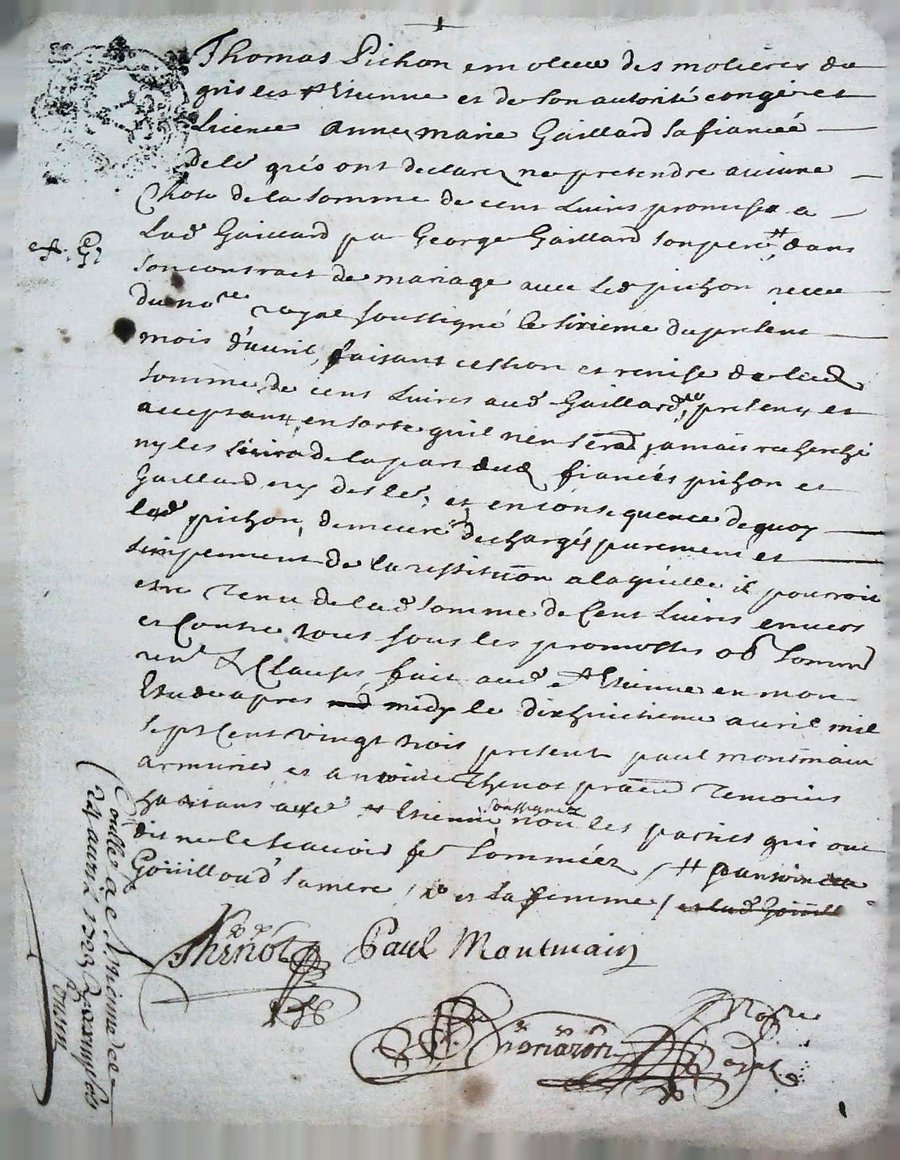 Thomas Pichon emoleur des molieres du
gris les st Etienne et de son autorité congé et
Licence anne marie Gaillard sa fiancée
de lé grés ont declaré ne pretendre aucune
Chose de la somme de cent Livres promise a
Lad Gaillard pa George Gaillard son pere # dans
son contract de mariage avec led pichon receu
du nore royal soussigné le sixieme du present
mois d'avril, faisant cession et remise de lad
somme de cent Livres aud Gaillard xo present et
acceptant, en sorte quil n'en sera jamais recherché
ny les siens de la part desd fiancés pichon et
Gaillard ny des les, et en consequence dequoy
led pichon, demeure dechargés purement et
simpement de la restitution a laquelle il pourroit
estre Tenu de lad somme de Cent Livres envers
et Contre tous sous les promesses ob
ren & Clauses fait aud st Etienne en mon
Etude apres midy le dixhuictieme avril mil
sept Cent vingt trois present paul montmain
armurier et antoine Thenot Temoins
habitans aud st Etienne soussignez non les parties qui ont
dit ne le scavoir sommées / #
Goüilloud sa mere / xo et sa femme /
Thenot Paul Montmain
Royal
Conlle a st Etienne ce
24 avril 1723